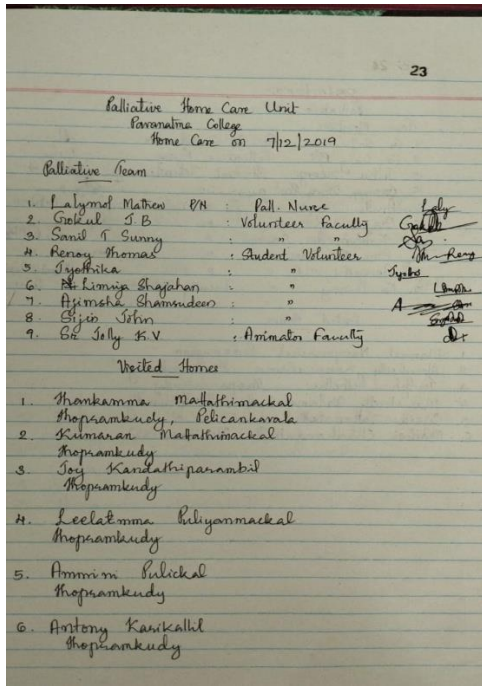 23
Palliative Home Care Unit
Pavanatma College
Home Care on 7/12/2019
Palliative Team
1. Lalymol Mathew P/N : Pall. Nurse Laly
2. Gokul J.B : Volunteer Faculty
3. Sanil T Sunny : "
4. Renoy Thomas : Student Volunteer
5. Jyothika : "
6. Limiya Shajahan : "
7. Ajimsha Shamsudeen : "
8. Sijin John : "
9. Sr. Jolly K.V : Animator Faculty
Visited Homes
1. Thankamma Mattathimackal
Thopramkudy, Pelicankavala
2. Kumaran Mattathimackal
Thopramkudy
3. Joy Kandathiparambil
Thopramkudy
4. Leelamma Puliyanmackal
Thopramkudy
5. Ammini Pulickal
Thopramkudy
6. Antony Karikallil
Thopramkudy